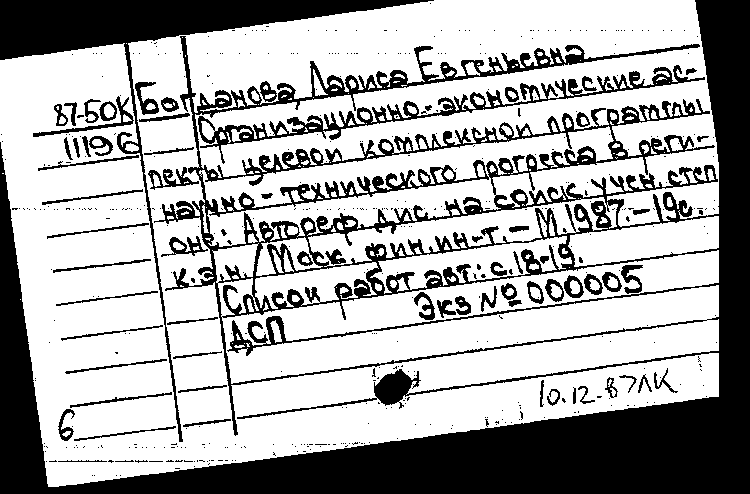 87-50К Богданова, Лариса Евгеньевна
11196 Организационно-экономические ас-
пекты целевой комплексной программы
научно-технического прогресса в реги-
оне: Автореф. дис. на соиск. учен. степ
к.э.н. / Моск. фин. ин-т. - М. 1987. - 19с.
Список работ авт.: с. 18-19.
ДСП Экз № 000005
10.12.87 ЛК
б